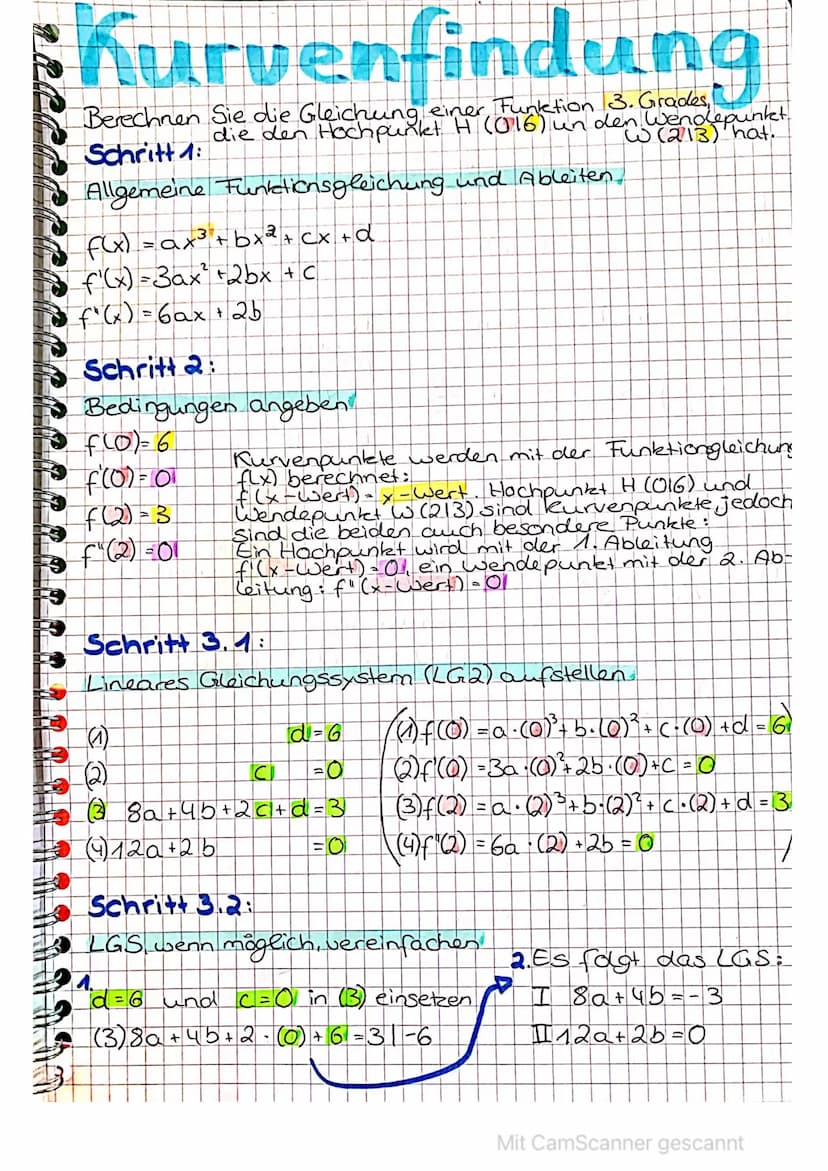 Kurvenfindung
Berechnen Sie die Gleichung einer Funktion 3. Grades,
die den Hochpunkt H (016) un den Wendepunkt
W(213) hat.
Schritt 1:
Allgemeine Funktionsgleichung und Ableiten
f(x) = ax³ + bx² + cx + d
f'(x) = 3ax² + 2bx + c
f"(x) = 6ax + 2b
Schritt 2:
Bedingungen angeben
f(0) = 6
f'(0) = 0
f(2) = 3
f"(2) = 0
Kurvenpunkte werden mit der Funktiongleichung
f(x) berechnet:
f(x-Wert) = x-Wert. Hochpunkt H (016) und
Wendepunkt W(213) sind Kurvenpunkte jedoch
sind die beiden auch besondere Punkte:
Ein Hochpunkt wird mit der 1. Ableitung
f'(x-Wert) = 0, ein Wendepunkt mit der 2. Ab-
leitung: f"(x-Wert) = 0
Schritt 3.1:
Lineares Gleichungssystem (LG2) aufstellen
(1) d = 6
(2) c = 0
(3) 8a + 4b + 2c + d = 3
(4) 12a + 2b = 0
(1) f(0) = a·(0)³ + b·(0)² + c·(0) + d = 6
(2) f'(0) = 3a·(0)² + 2b·(0) + c = 0
(3) f(2) = a·(2)³ + b·(2)² + c·(2) + d = 3
(4) f"(2) = 6a·(2) + 2b = 0
Schritt 3.2:
LGS, wenn möglich, vereinfachen
1.
d = 6 und c = 0 in (3) einsetzen
(3) 8a + 4b + 2·(0) + 6 = 3 | -6
2. Es folgt das LGS:
I 8a + 4b = -3
II 12a + 2b = 0
Mit CamScanner gescannt